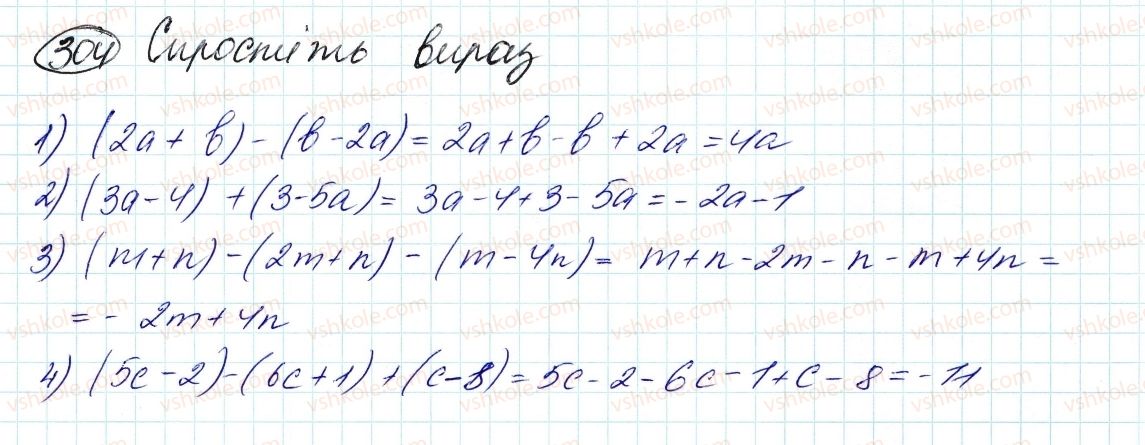 304 Спростіть вираз
1) (2a + b) - (b - 2a) = 2a + b - b + 2a = 4a
2) (3a - 4) + (3 - 5a) = 3a - 4 + 3 - 5a = - 2a - 1
3) (m + n) - (2m + n) - (m - 4n) = m + n - 2m - n - m + 4n =
= - 2m + 4n
4) (5c - 2) - (6c + 1) + (c - 8) = 5c - 2 - 6c - 1 + c - 8 = - 11